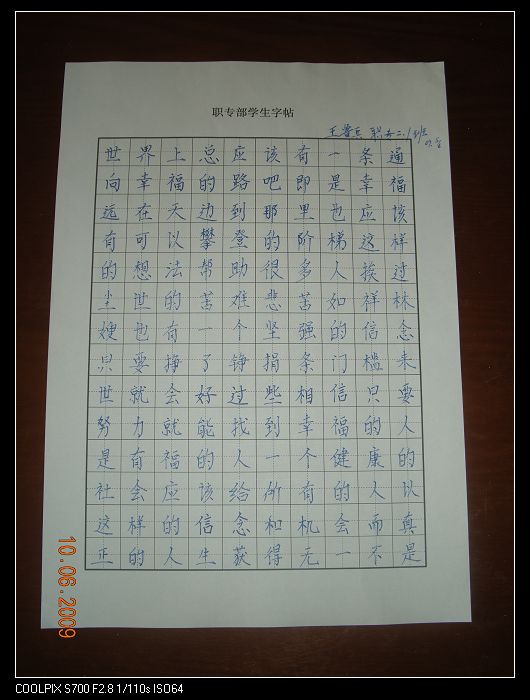 职专部学生字帖
职专二.1班
世界上总应该有一条通
向幸福的路吧即是幸福
远在天边到那里也应该
有可以攀登的阶梯这样
的想法帮助很多人挨过
尘世的苦难悲苦如祥林
嫂也有一个坚强的信念
只要挣了钱捐条门槛来
世就会好过些相信只要
努力就能找到幸福的人
是有福的人一个健康的
社会应该给所有的人以
这样的信念和机会而真
正的人生获得无一不是
10.06.2009
COOLPIX S700 F2.8 1/110s ISO64